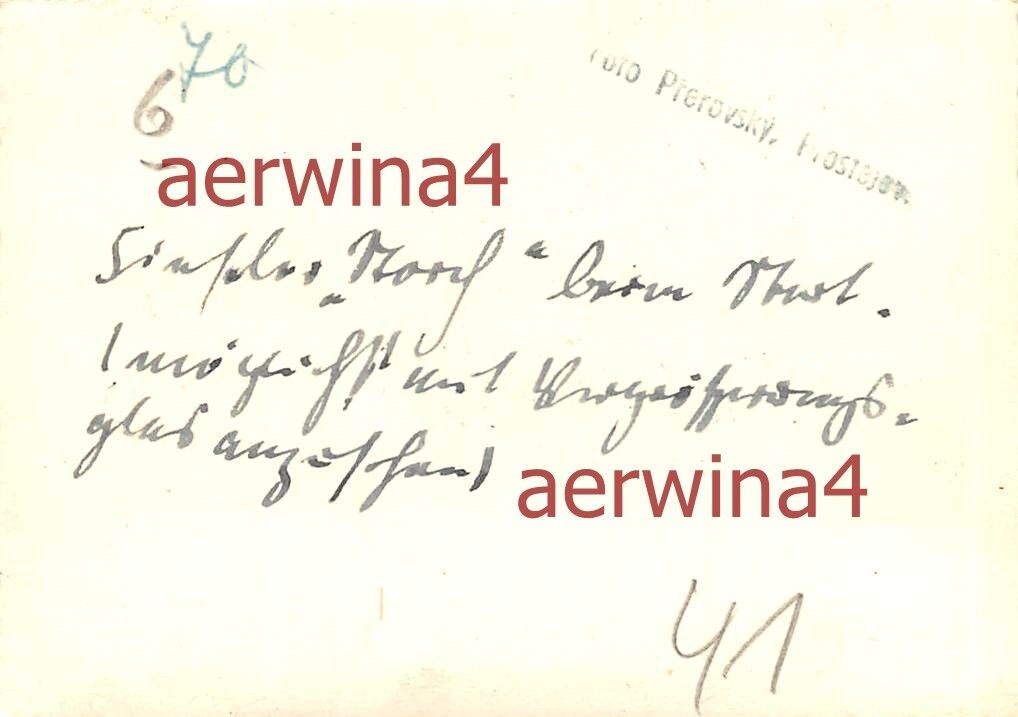 70
6
Foto Přerovský, Prostějov.
aerwina4
Fieseler „Storch“ beim Start.
(möglichst mit Vergrösserungs-
glas anzusehen)
aerwina4
41